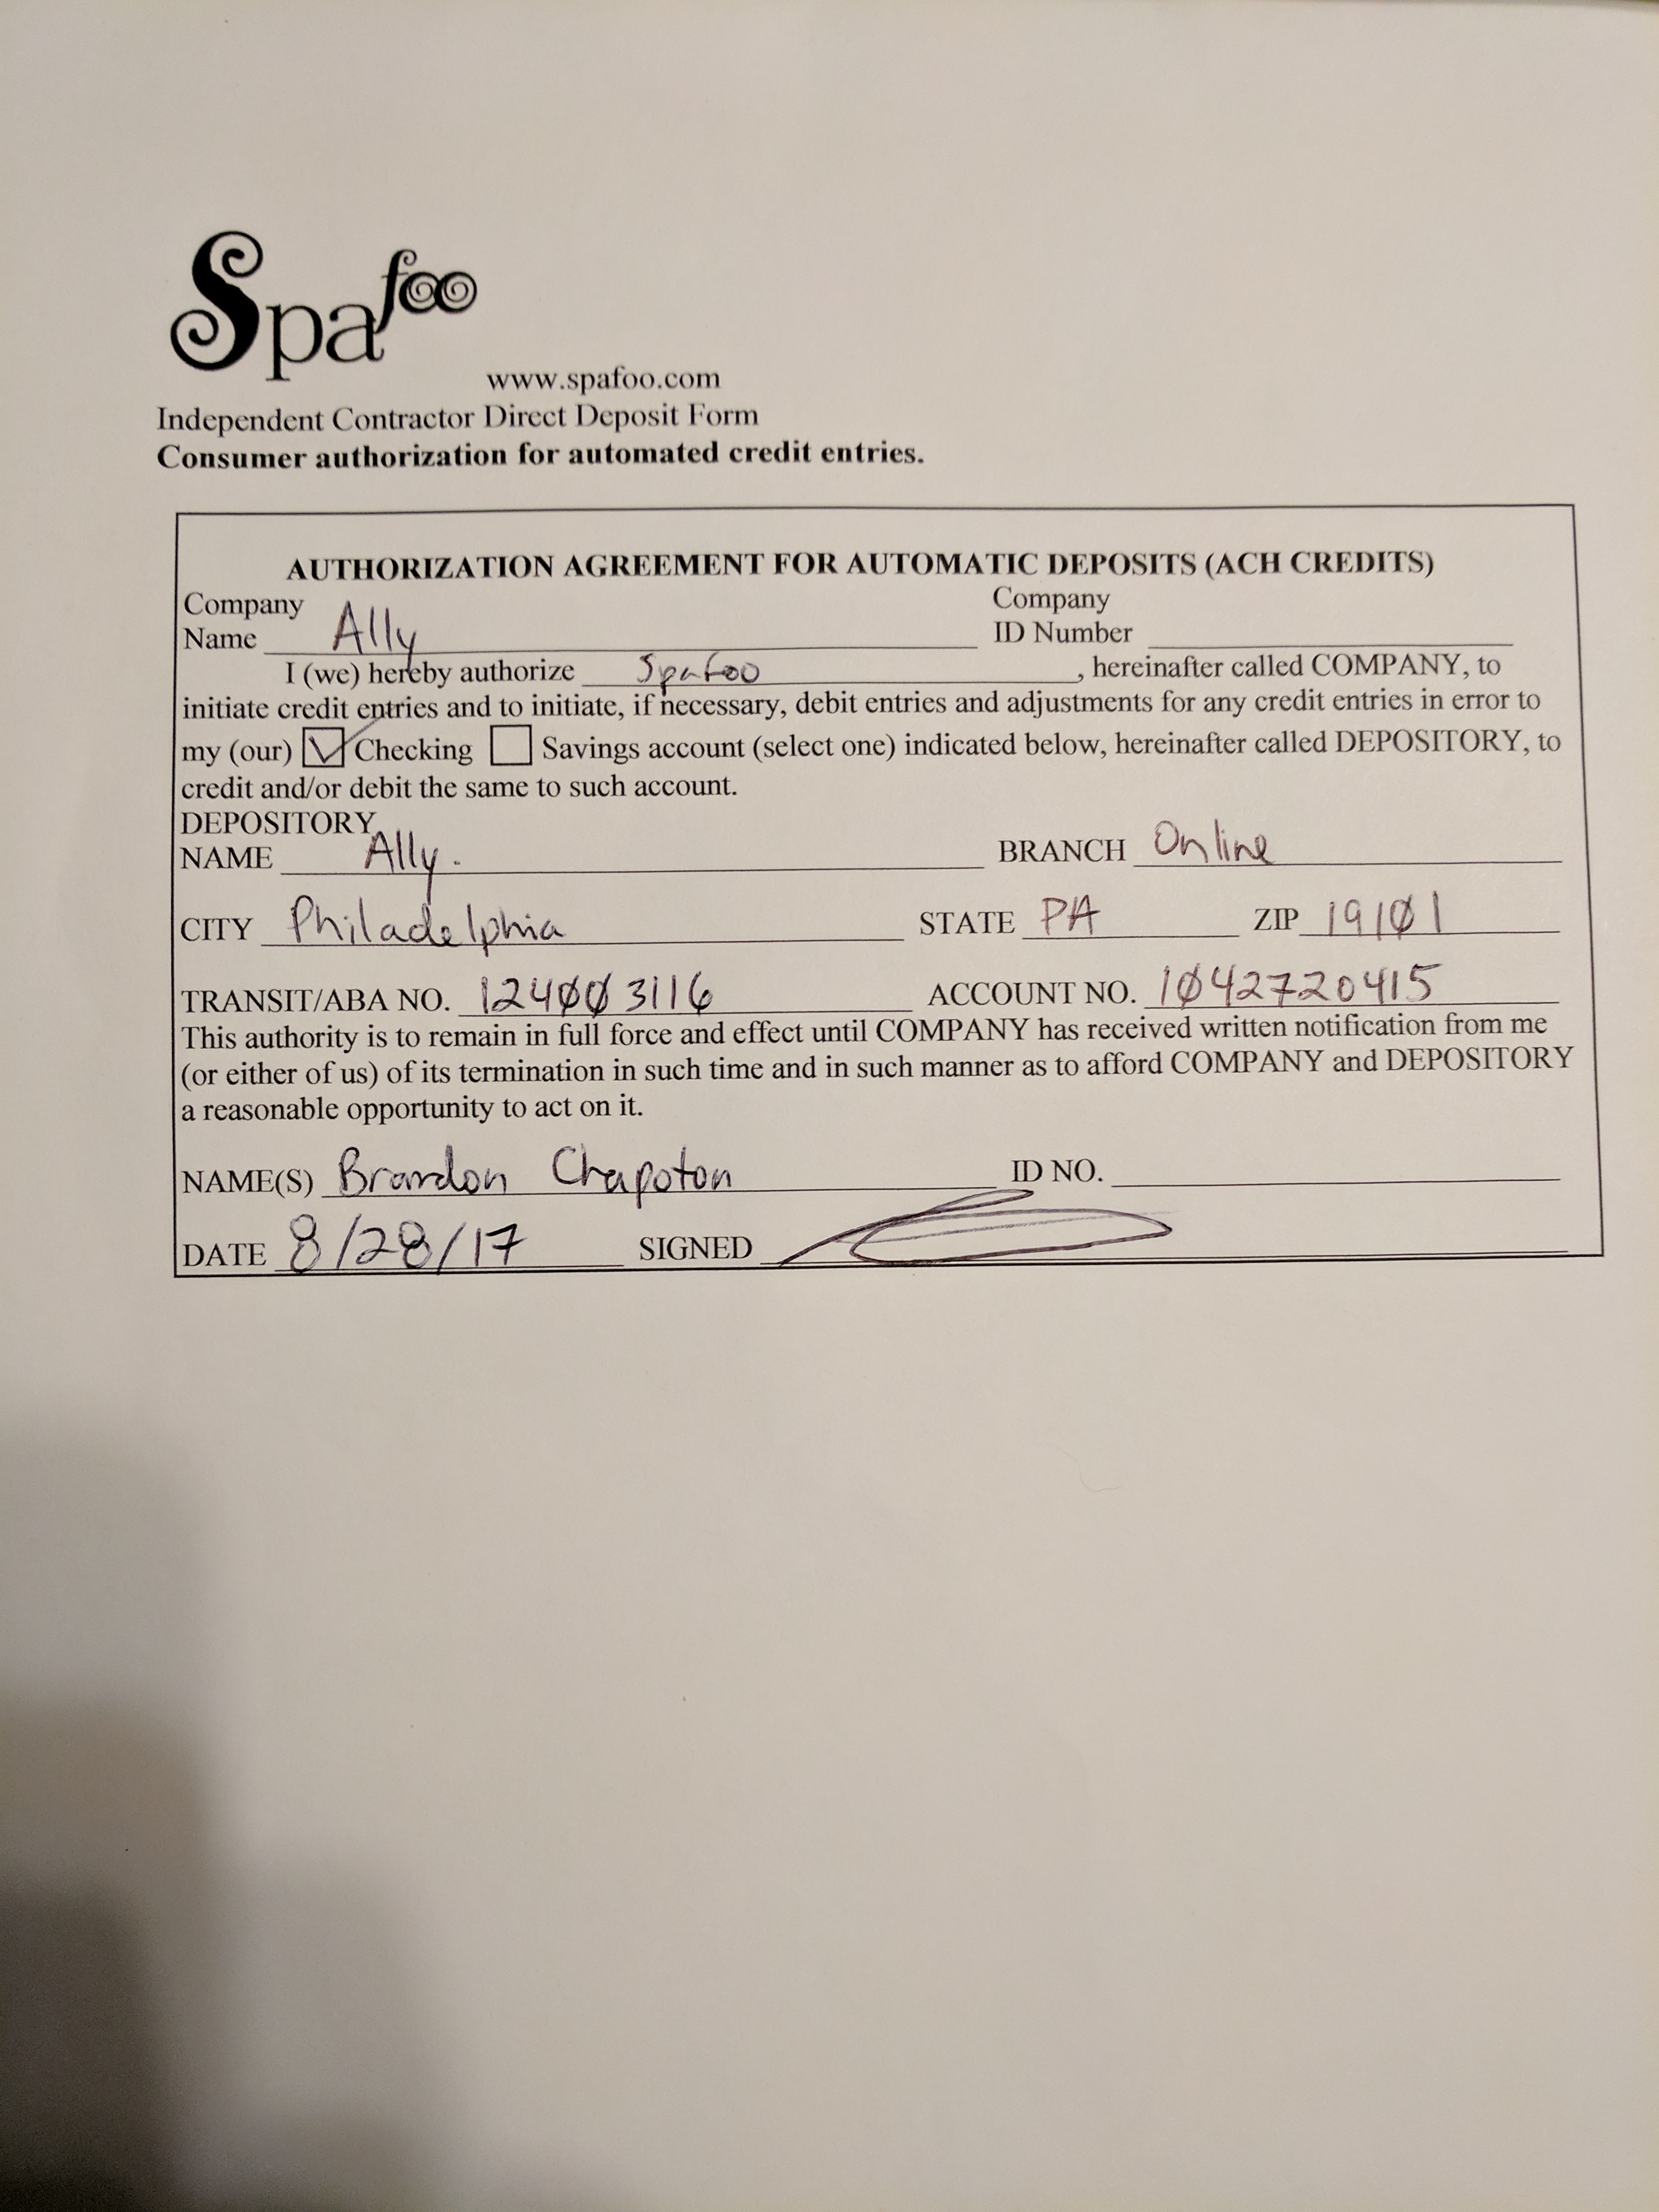 Spafoo
www.spafoo.com
Independent Contractor Direct Deposit Form
Consumer authorization for automated credit entries.
AUTHORIZATION AGREEMENT FOR AUTOMATIC DEPOSITS (ACH CREDITS)
Company Name Ally Company ID Number
I (we) hereby authorize Spafoo, hereinafter called COMPANY, to
initiate credit entries and to initiate, if necessary, debit entries and adjustments for any credit entries in error to
my (our) Checking Savings account (select one) indicated below, hereinafter called DEPOSITORY, to
credit and/or debit the same to such account.
DEPOSITORY
NAME Ally. BRANCH Online
CITY Philadelphia STATE PA ZIP 19101
TRANSIT/ABA NO. 124003116 ACCOUNT NO. 1042720415
This authority is to remain in full force and effect until COMPANY has received written notification from me
(or either of us) of its termination in such time and in such manner as to afford COMPANY and DEPOSITORY
a reasonable opportunity to act on it.
NAME(S) Brandon Chapoton ID NO.
DATE 8/28/17 SIGNED